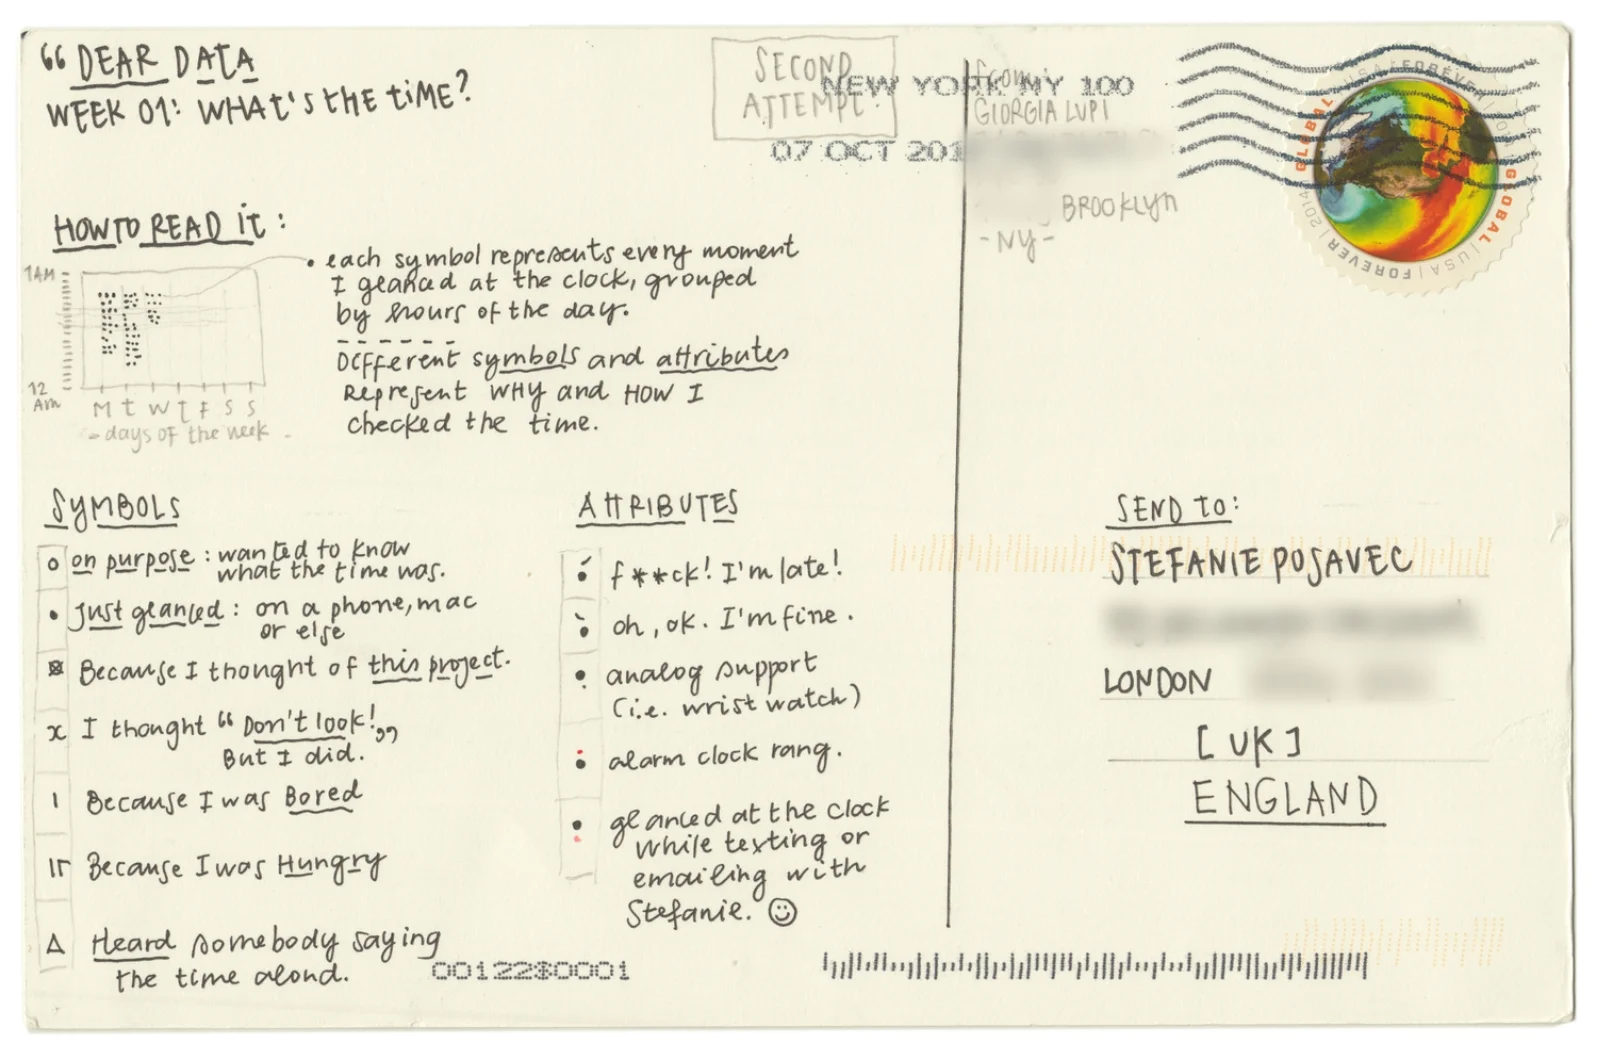 “ DEAR DATA
WEEK 01: WHAT'S THE TIME?
SECOND
ATTEMPT
NEW YORK NY 100
07 OCT 201
From:
GIORGIA LUPI
BROOKLYN
- NY -
GLOBAL USA FOREVER 2014 GLOBAL USA FOREVER 2014
HOW TO READ IT:
1AM
12
AM
M T W T F S S
- days of the week -
• each symbol represents every moment
I glanced at the clock, grouped
by hours of the day.
Different symbols and attributes
Represent WHY and HOW I
checked the time.
SYMBOLS
on purpose: wanted to know
what the time was.
Just glanced: on a phone, mac
or else
Because I thought of this project.
I thought “Don't look!„
But I did.
Because I was Bored
Because I was Hungry
Heard somebody saying
the time aloud.
ATTRIBUTES
f**ck! I'm late!
oh, ok. I'm fine.
analog support
(i.e. wrist watch)
alarm clock rang.
glanced at the clock
while texting or
emailing with
Stefanie. ☺
SEND TO:
STEFANIE POSAVEC
LONDON
[UK]
ENGLAND
00122$0001